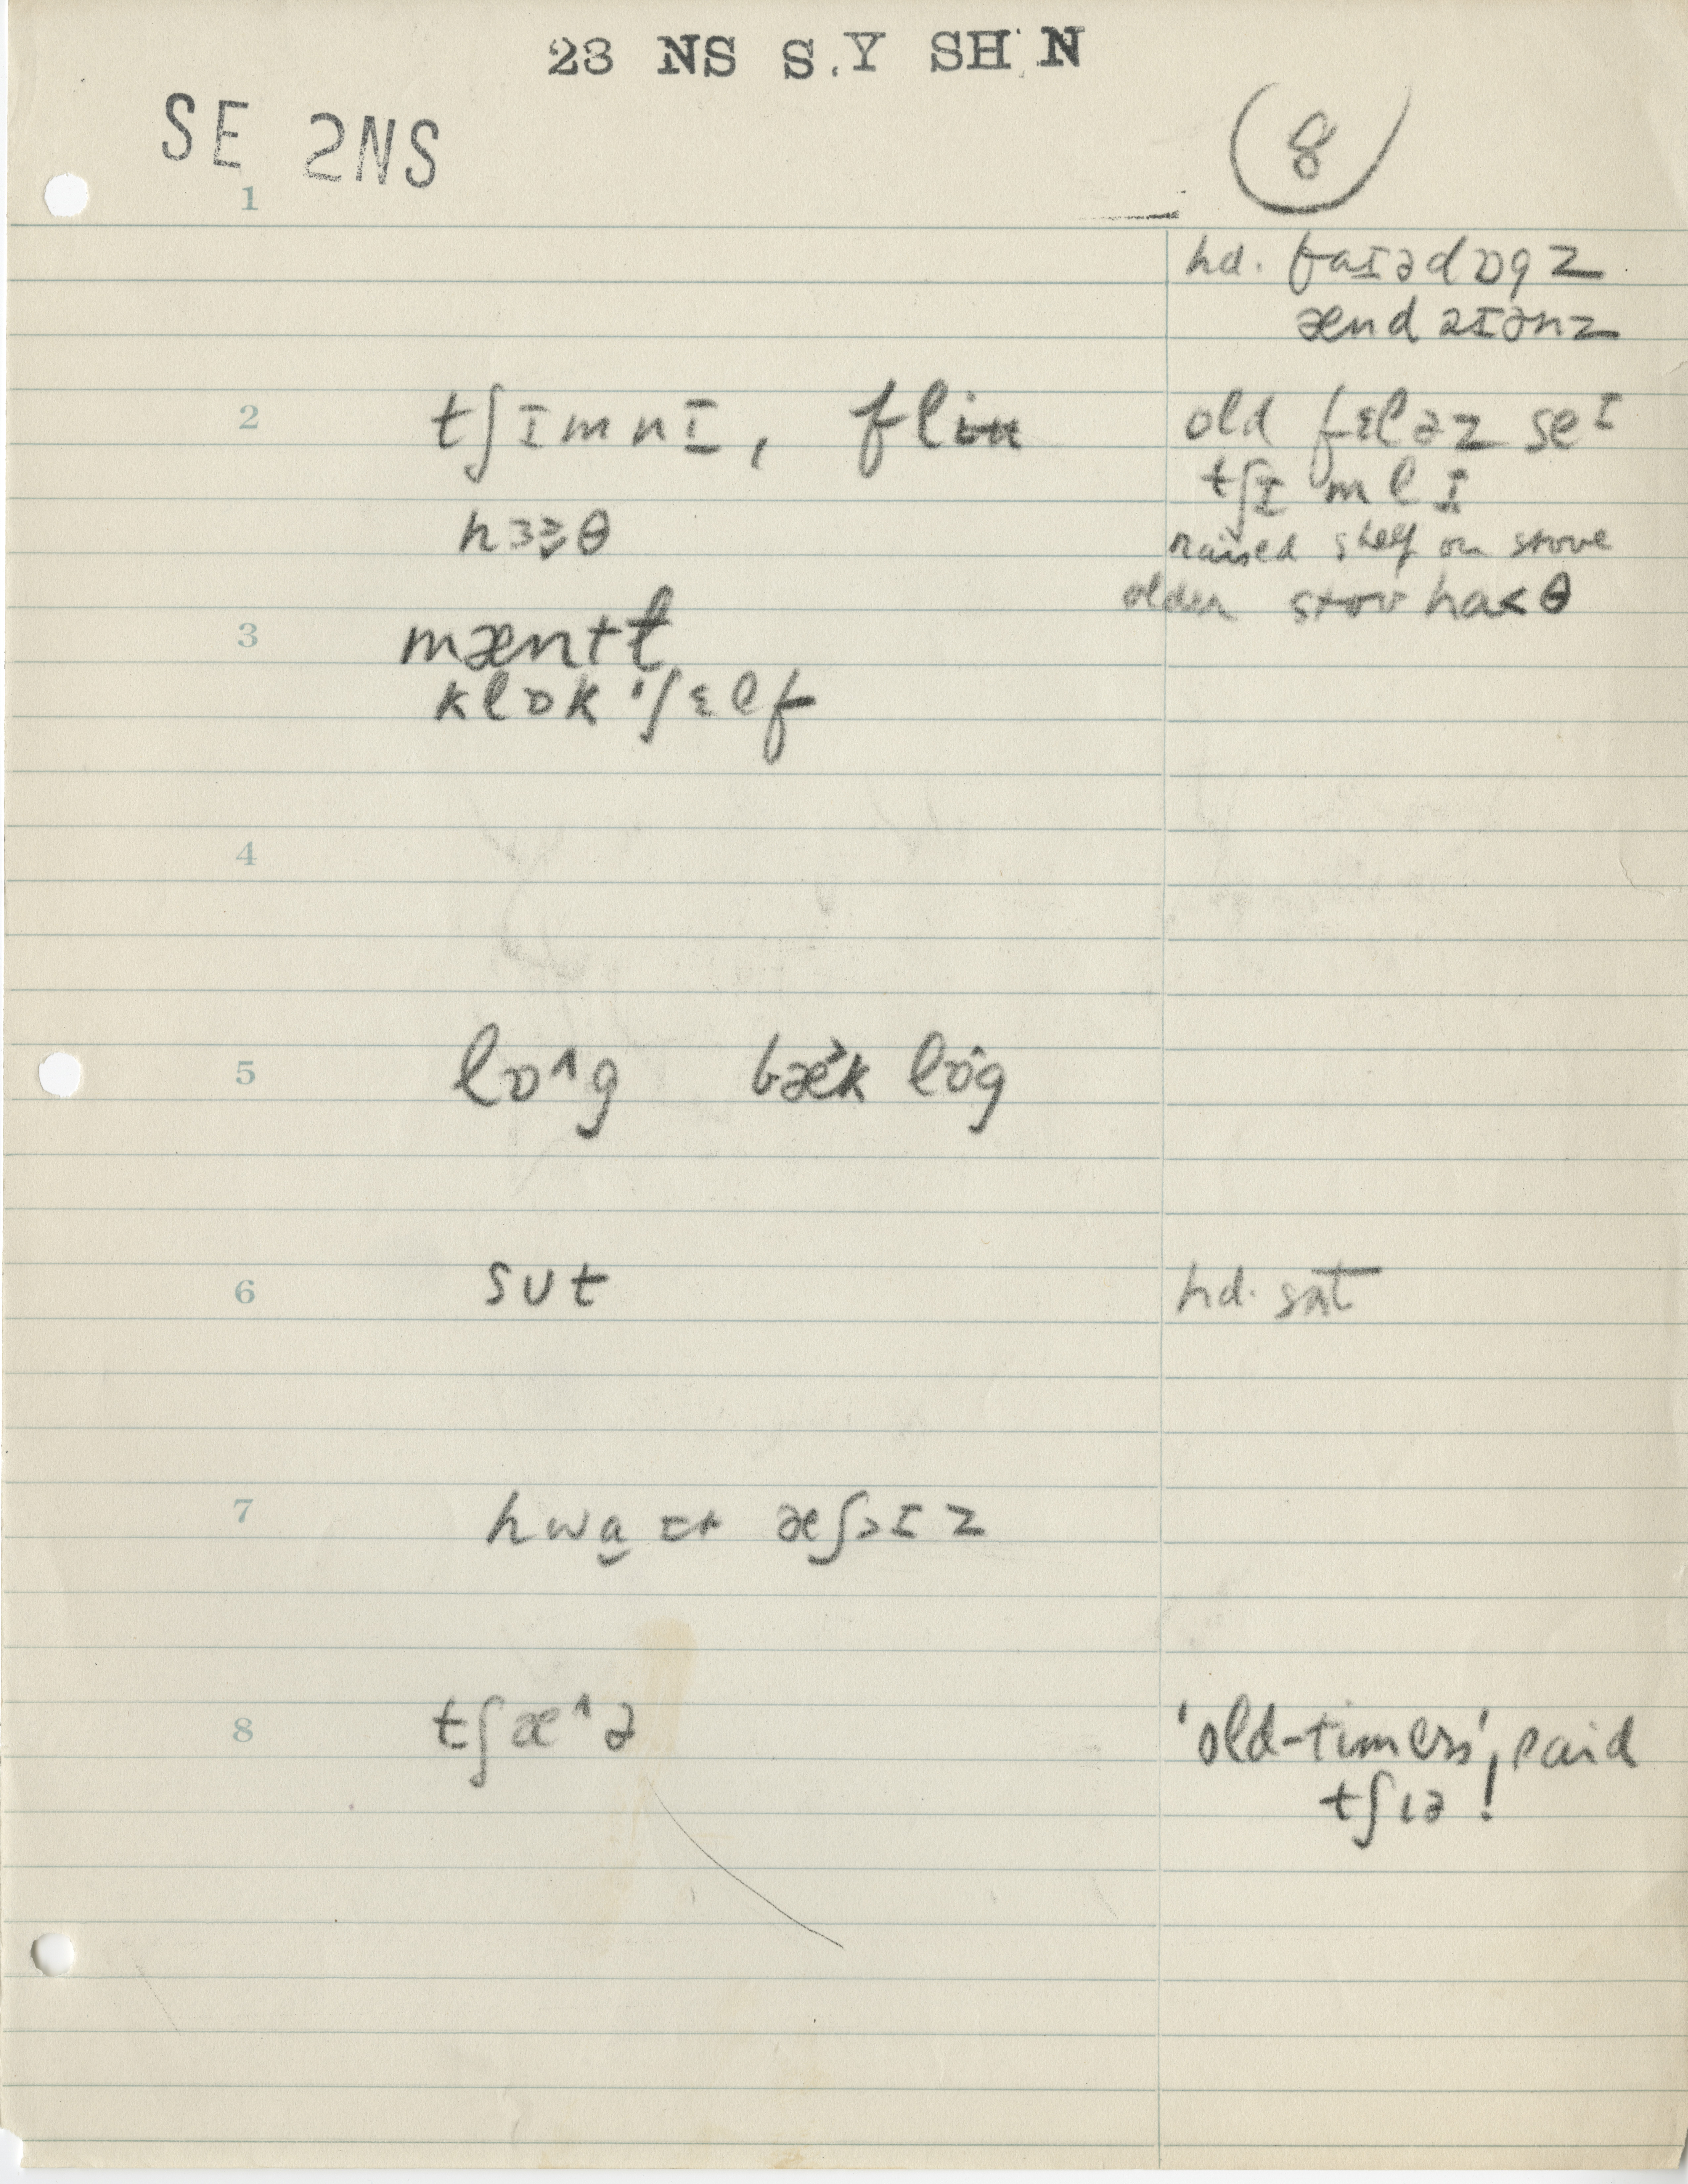 23 NS S.Y SH N
SE 2NS
8
1
hd. faɪədɒgz
ænd aɪənz
2 tʃɪmnɪ, flu
old fɛləz seɪ
tʃɪmlɪ
raised shelf on stove
hɜɜ̬θ
older stov haθ
3 mæntɫ
klɒk ˈʃɛlf
4
5 lɒ^g bæ̓k lɒ̂g
6 sut hd. sʌt
7 hwa̬ɪt æʃɪz
8 tʃæ^ə
'old-timers', said
tʃɪə!